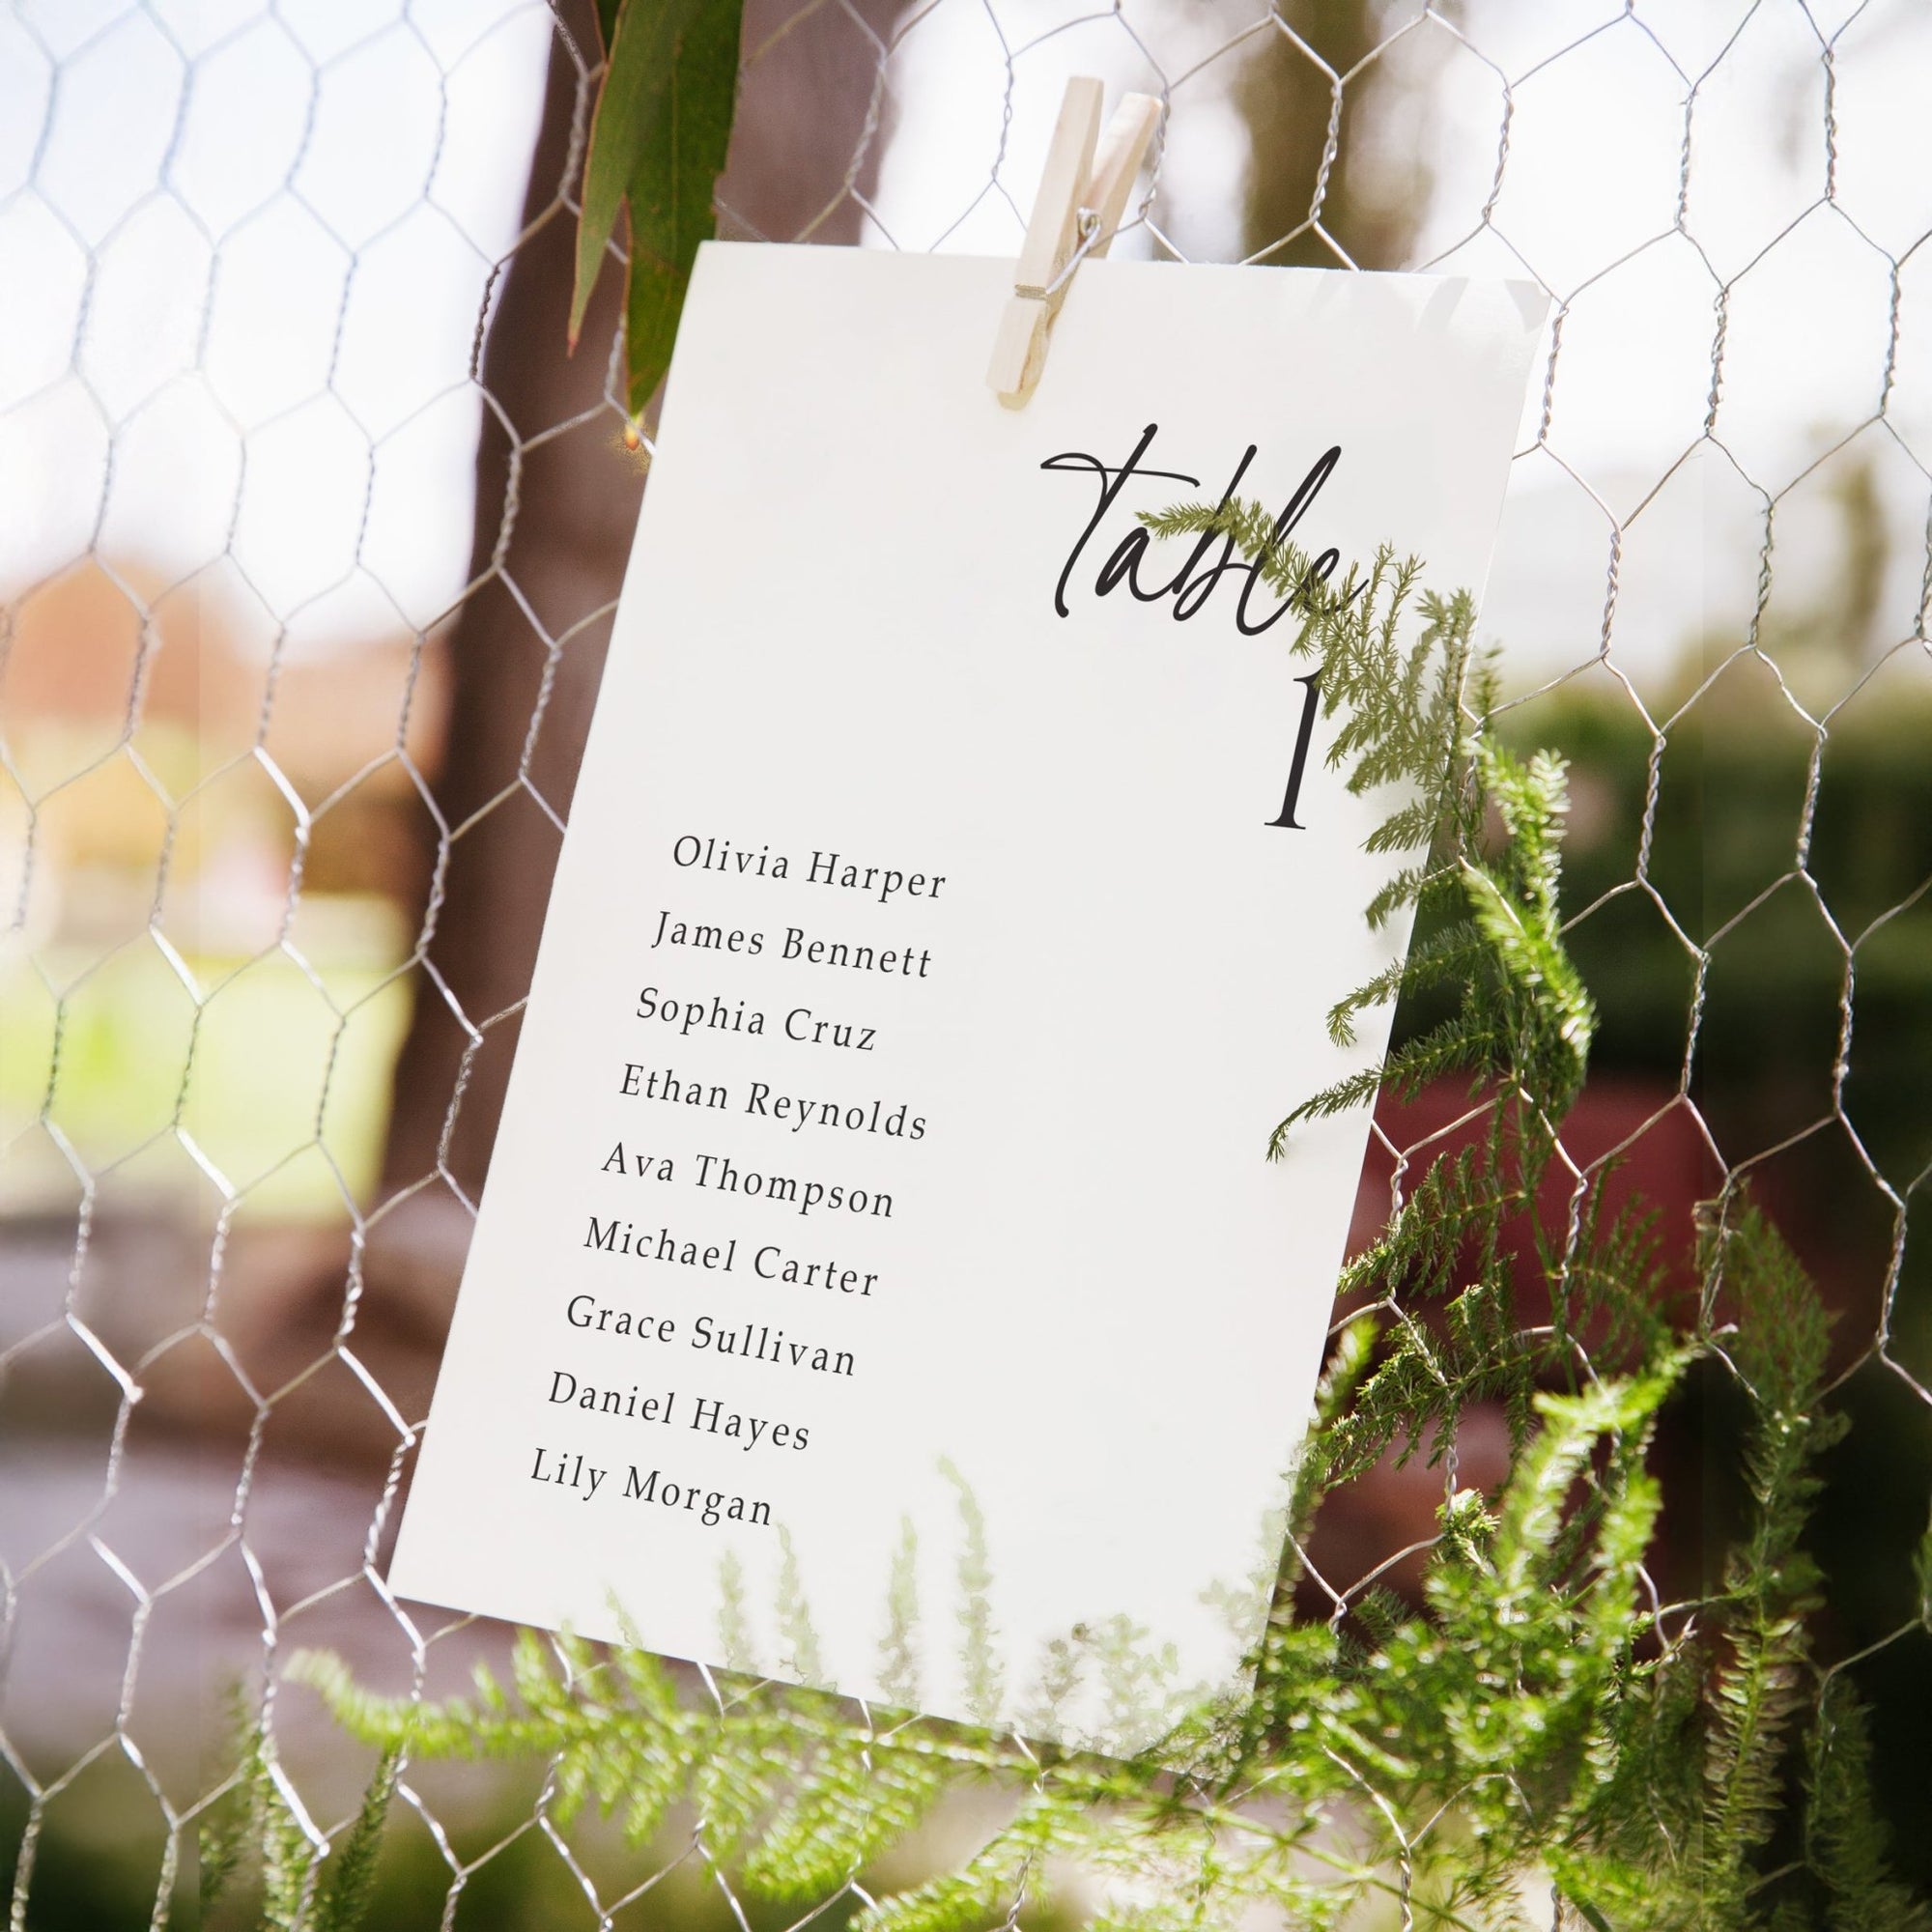 table
1
Olivia Harper
James Bennett
Sophia Cruz
Ethan Reynolds
Ava Thompson
Michael Carter
Grace Sullivan
Daniel Hayes
Lily Morgan